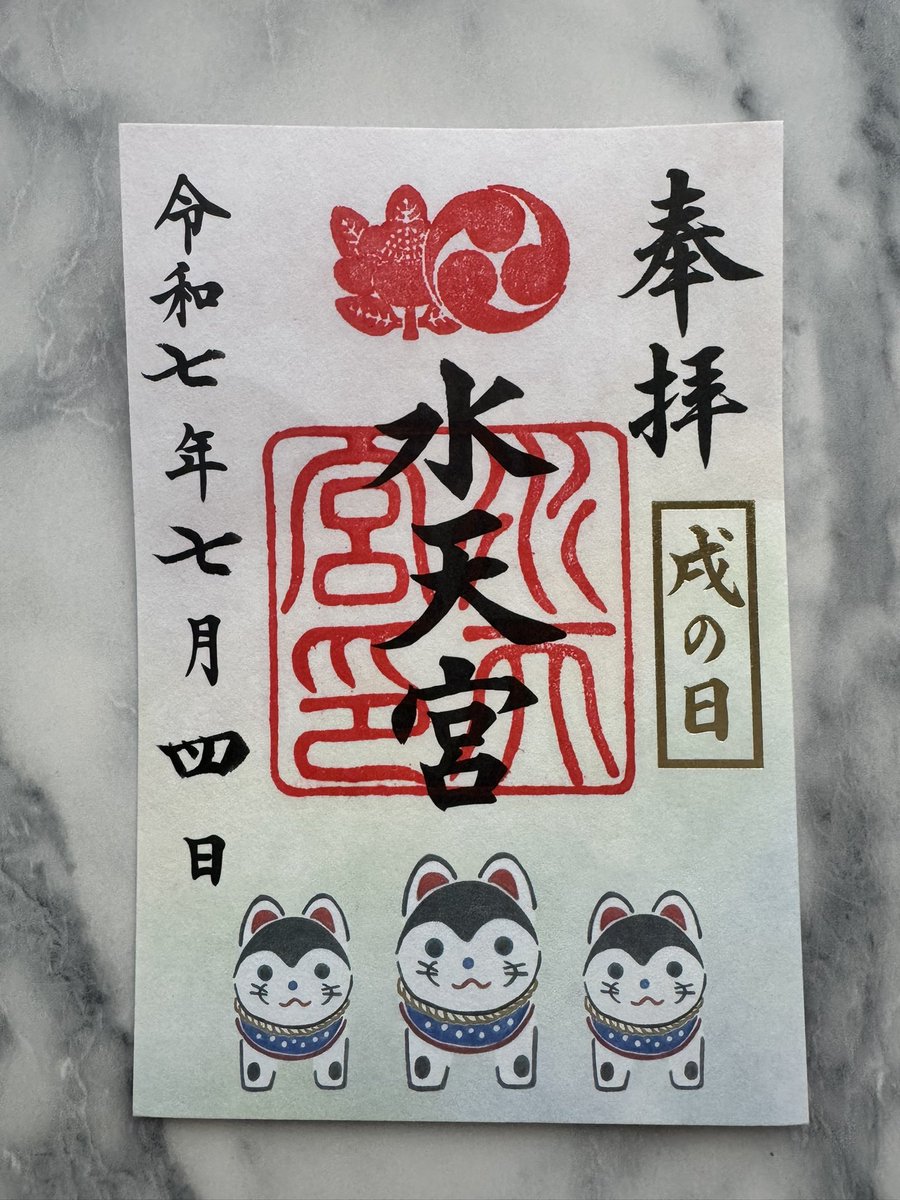 奉拝
戌の日
水天宮
水天宮印
令和七年七月四日